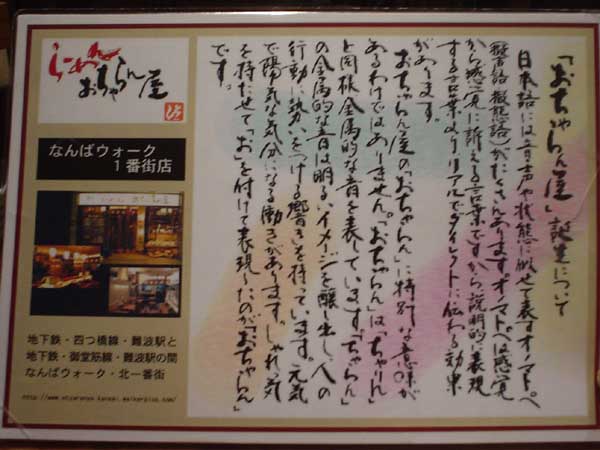 らーめん
おちゃらん屋
なんばウォーク
1番街店
地下鉄・四つ橋線・難波駅と
地下鉄・御堂筋線・難波駅の間
なんばウォーク・北一番街
「おちゃらん屋」誕生について
日本語には音声や状態に似せて表すオノマトペ
(擬音語・擬態語)がたくさんあります。オノマトペは感覚
から感覚に訴える言葉ですから、説明的に表現
する言葉よりリアルでダイレクトに伝わる効果
があります。
おちゃらん屋の「おちゃらん」に特別な意味が
あるわけではありません。「おちゃらん」は「ちゃりーん」
と同様金属的な音を表しています。「ちゃらん」
の金属的な音は明るいイメージを醸し出し、人の
行動に勢いをつける響きを持っています。元気
で陽気な気分になる働きがあります。しゃれっ気
を持たせて「お」を付けて表現したのが「おちゃらん」
です。